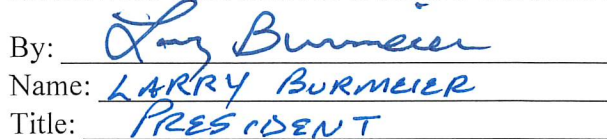 By: Larry Burmeier
Name: LARRY BURMEIER
Title: PRESIDENT